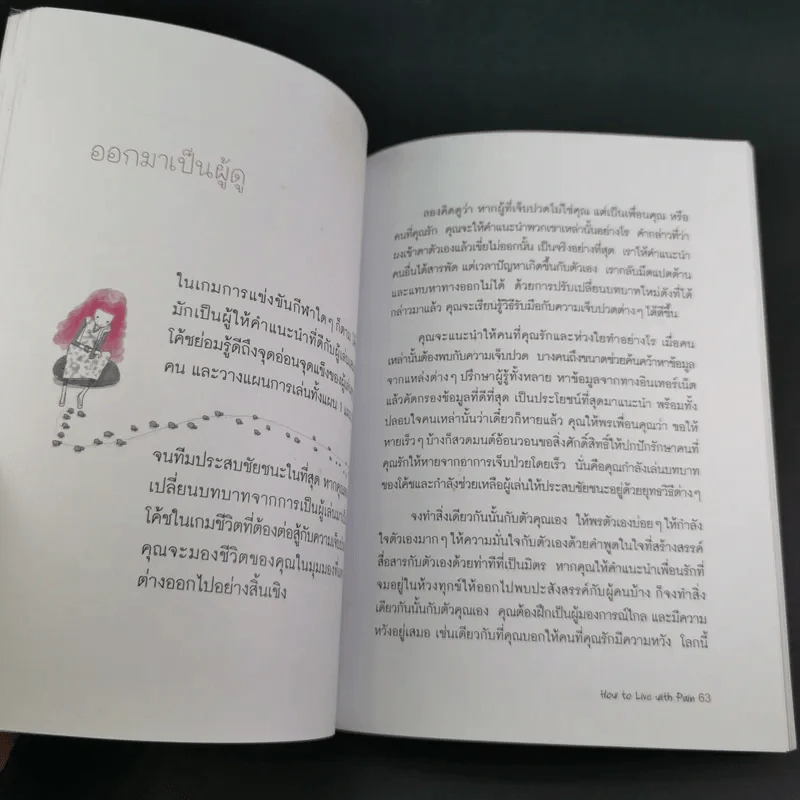 ออกมาเป็นผู้ดู
ในเกมการแข่งขันกีฬาใดๆก็ตาม
มักเป็นผู้ให้คำแนะนำที่ดีกับผู้เล่น
โค้ชย่อมรู้ดีถึงจุดอ่อนจุดแข็งของผู้เล่น
คน และวางแผนการเล่นทั้งแผน 1
จนทีมประสบชัยชนะในที่สุด หากคุณ
เปลี่ยนบทบาทจากการเป็นผู้เล่น
โค้ชในเกมชีวิตที่ต้องต่อสู้กับความ
คุณจะมองชีวิตของคุณในมุมมอง
ต่างออกไปอย่างสิ้นเชิง
ลองคิดดูว่า หากผู้ที่เจ็บปวดไม่ใช่คุณ แต่เป็นเพื่อนคุณ หรือ
คนที่คุณรัก คุณจะให้คำแนะนำพวกเขาเหล่านั้นอย่างไร คำกล่าวที่ว่า
ผงเข้าตาตัวเองแล้วเขี่ยไม่ออกนั้น เป็นจริงอย่างที่สุด เราให้คำแนะนำ
คนอื่นได้สารพัด แต่เวลาปัญหาเกิดขึ้นกับตัวเอง เรากลับมืดแปดด้าน
และแทบหาทางออกไม่ได้ ด้วยการปรับเปลี่ยนบทบาทใหม่ดังที่ได้
กล่าวมาแล้ว คุณจะเรียนรู้วิธีรับมือกับความเจ็บปวดต่างๆ ได้ดีขึ้น
คุณจะแนะนำให้คนที่คุณรักและห่วงใยทำอย่างไร เมื่อคน
เหล่านั้นต้องพบกับความเจ็บปวด บางคนถึงขนาดช่วยค้นคว้าหาข้อมูล
จากแหล่งต่างๆ ปรึกษาผู้รู้ทั้งหลาย หาข้อมูลจากทางอินเทอร์เน็ต
แล้วคัดกรองข้อมูลที่ดีที่สุด เป็นประโยชน์ที่สุดมาแนะนำ พร้อมทั้ง
ปลอบใจคนเหล่านั้นว่าเดี๋ยวก็หายแล้ว คุณให้พรเพื่อนคุณว่า ขอให้
หายเร็วๆ บ้างก็สวดมนต์อ้อนวอนขอสิ่งศักดิ์สิทธิ์ให้ปกปักรักษาคนที่
คุณรักให้หายจากอาการเจ็บป่วยโดยเร็ว นั่นคือคุณกำลังเล่นบทบาท
ของโค้ชและกำลังช่วยเหลือผู้เล่นให้ประสบชัยชนะอยู่ด้วยยุทธวิธีต่างๆ
จงทำสิ่งเดียวกันนั้นกับตัวคุณเอง ให้พรตัวเองบ่อยๆ ให้กำลัง
ใจตัวเองมากๆ ให้ความมั่นใจกับตัวเองด้วยคำพูดในใจที่สร้างสรรค์
สื่อสารกับตัวเองด้วยท่าทีที่เป็นมิตร หากคุณให้คำแนะนำเพื่อนรักที่
จมอยู่ในห้วงทุกข์ให้ออกไปพบปะสังสรรค์กับผู้คนบ้าง ก็จงทำสิ่ง
เดียวกันนั้นกับตัวคุณเอง คุณต้องฝึกเป็นผู้มองการณ์ไกล และมีความ
หวังอยู่เสมอ เช่นเดียวกับที่คุณบอกให้คนที่คุณรักมีความหวัง โลกนี้
How to Live with Pain 63